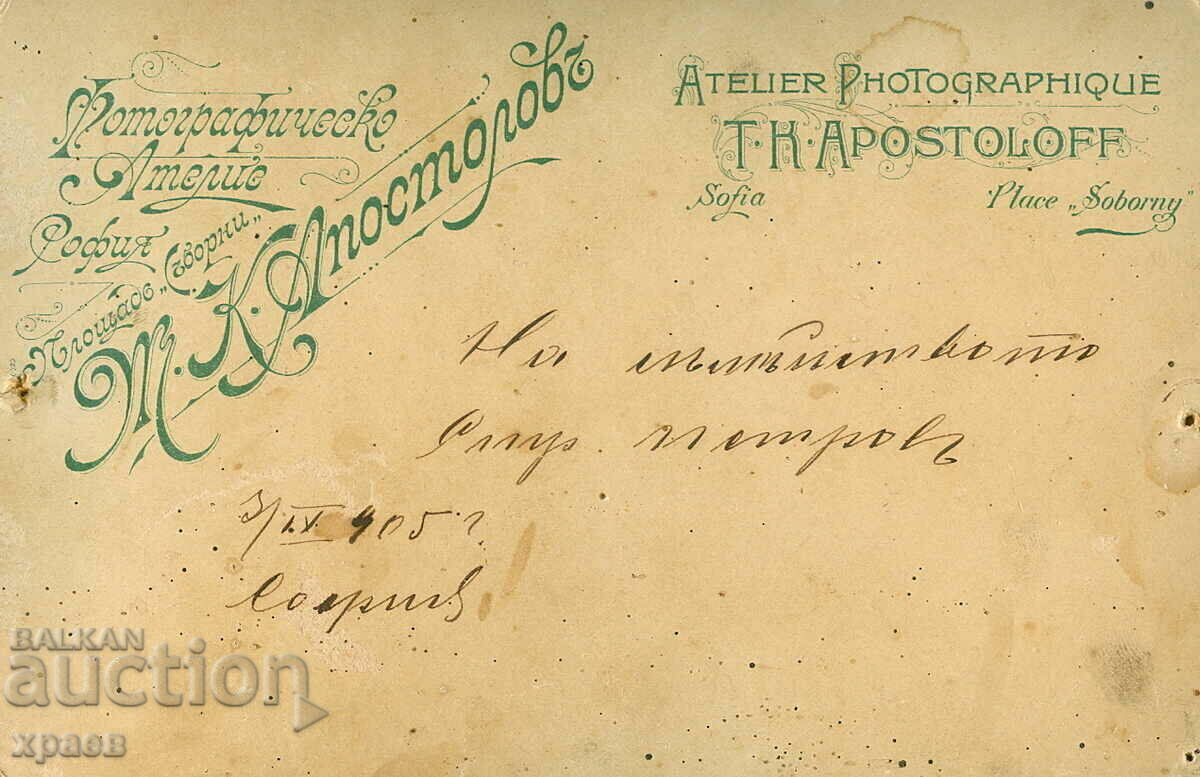 Фотографическо
Ателие
София
Площадъ „Съборни"
Т. К. Апостоловъ
ATELIER PHOTOGRAPHIQUE
T. K. APOSTOLOFF
Sofia Place „Soborny"
На
Петровъ
3/IX 905 г.
София
BALKAN
auction
храев